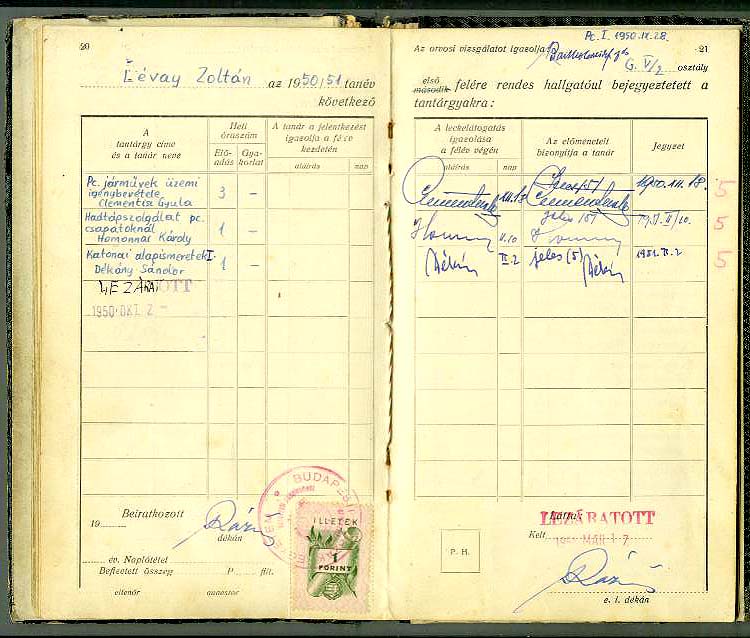 20
Lévay Zoltán az 1950/51 tanév
következő
A tantárgy címe és a tanár neve
Heti óraszám
Előadás
Gyakorlat
A tanár a jelentkezést igazolja a félév kezdetén
aláírás
nap
Pc. járművek üzemi
igénybevétele 3 –
Clementis Gyula
Hadtápszolgálat pc.
csapatoknál 1 –
Homonnai Károly
Katonai alapismeretek I.
Dékány Sándor 1 –
LEZÁRATOTT
1950 OKT 2
Beiratkozott
19
dékán
év. Naplótétel
Befizetett összeg P fill.
ellenőr quaestor
BUDAPEST
ILLETÉK
1
FORINT
Pc. I. 1950. IX. 28.
Az orvosi vizsgálatot igazolja:
21
G. V/2 osztály
első
második felére rendes hallgatóul bejegyeztetett a
tantárgyakra:
A leckelátogatás igazolása a félév végén
aláírás
nap
Az előmenetelt bizonyítja a tanár
Jegyzet
XII. 13 1950. XII. 18. 5
jeles (5) 1951. II/10. 5
II. 10
II. 2 jeles (5) 1951. II. 2. 5
Láttuk
LEZÁRATOTT
Kelt
MÁJ 17
P. H.
e. i. dékán